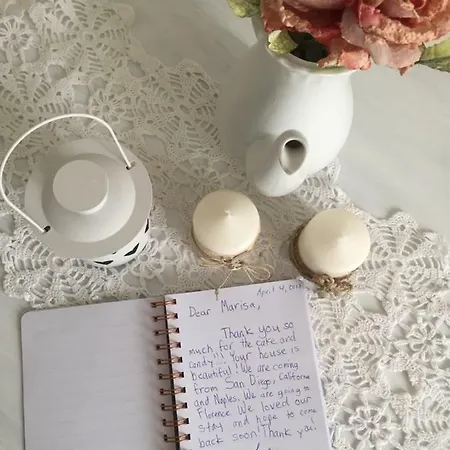 April 4, 2018
Dear Marisa,
Thank you so
much for the cake and
candy!!! Your house is
beautiful! We are coming
from San Diego, California
and Naples. We are going to
Florence. We loved our
stay and hope to come
back soon! Thank you!